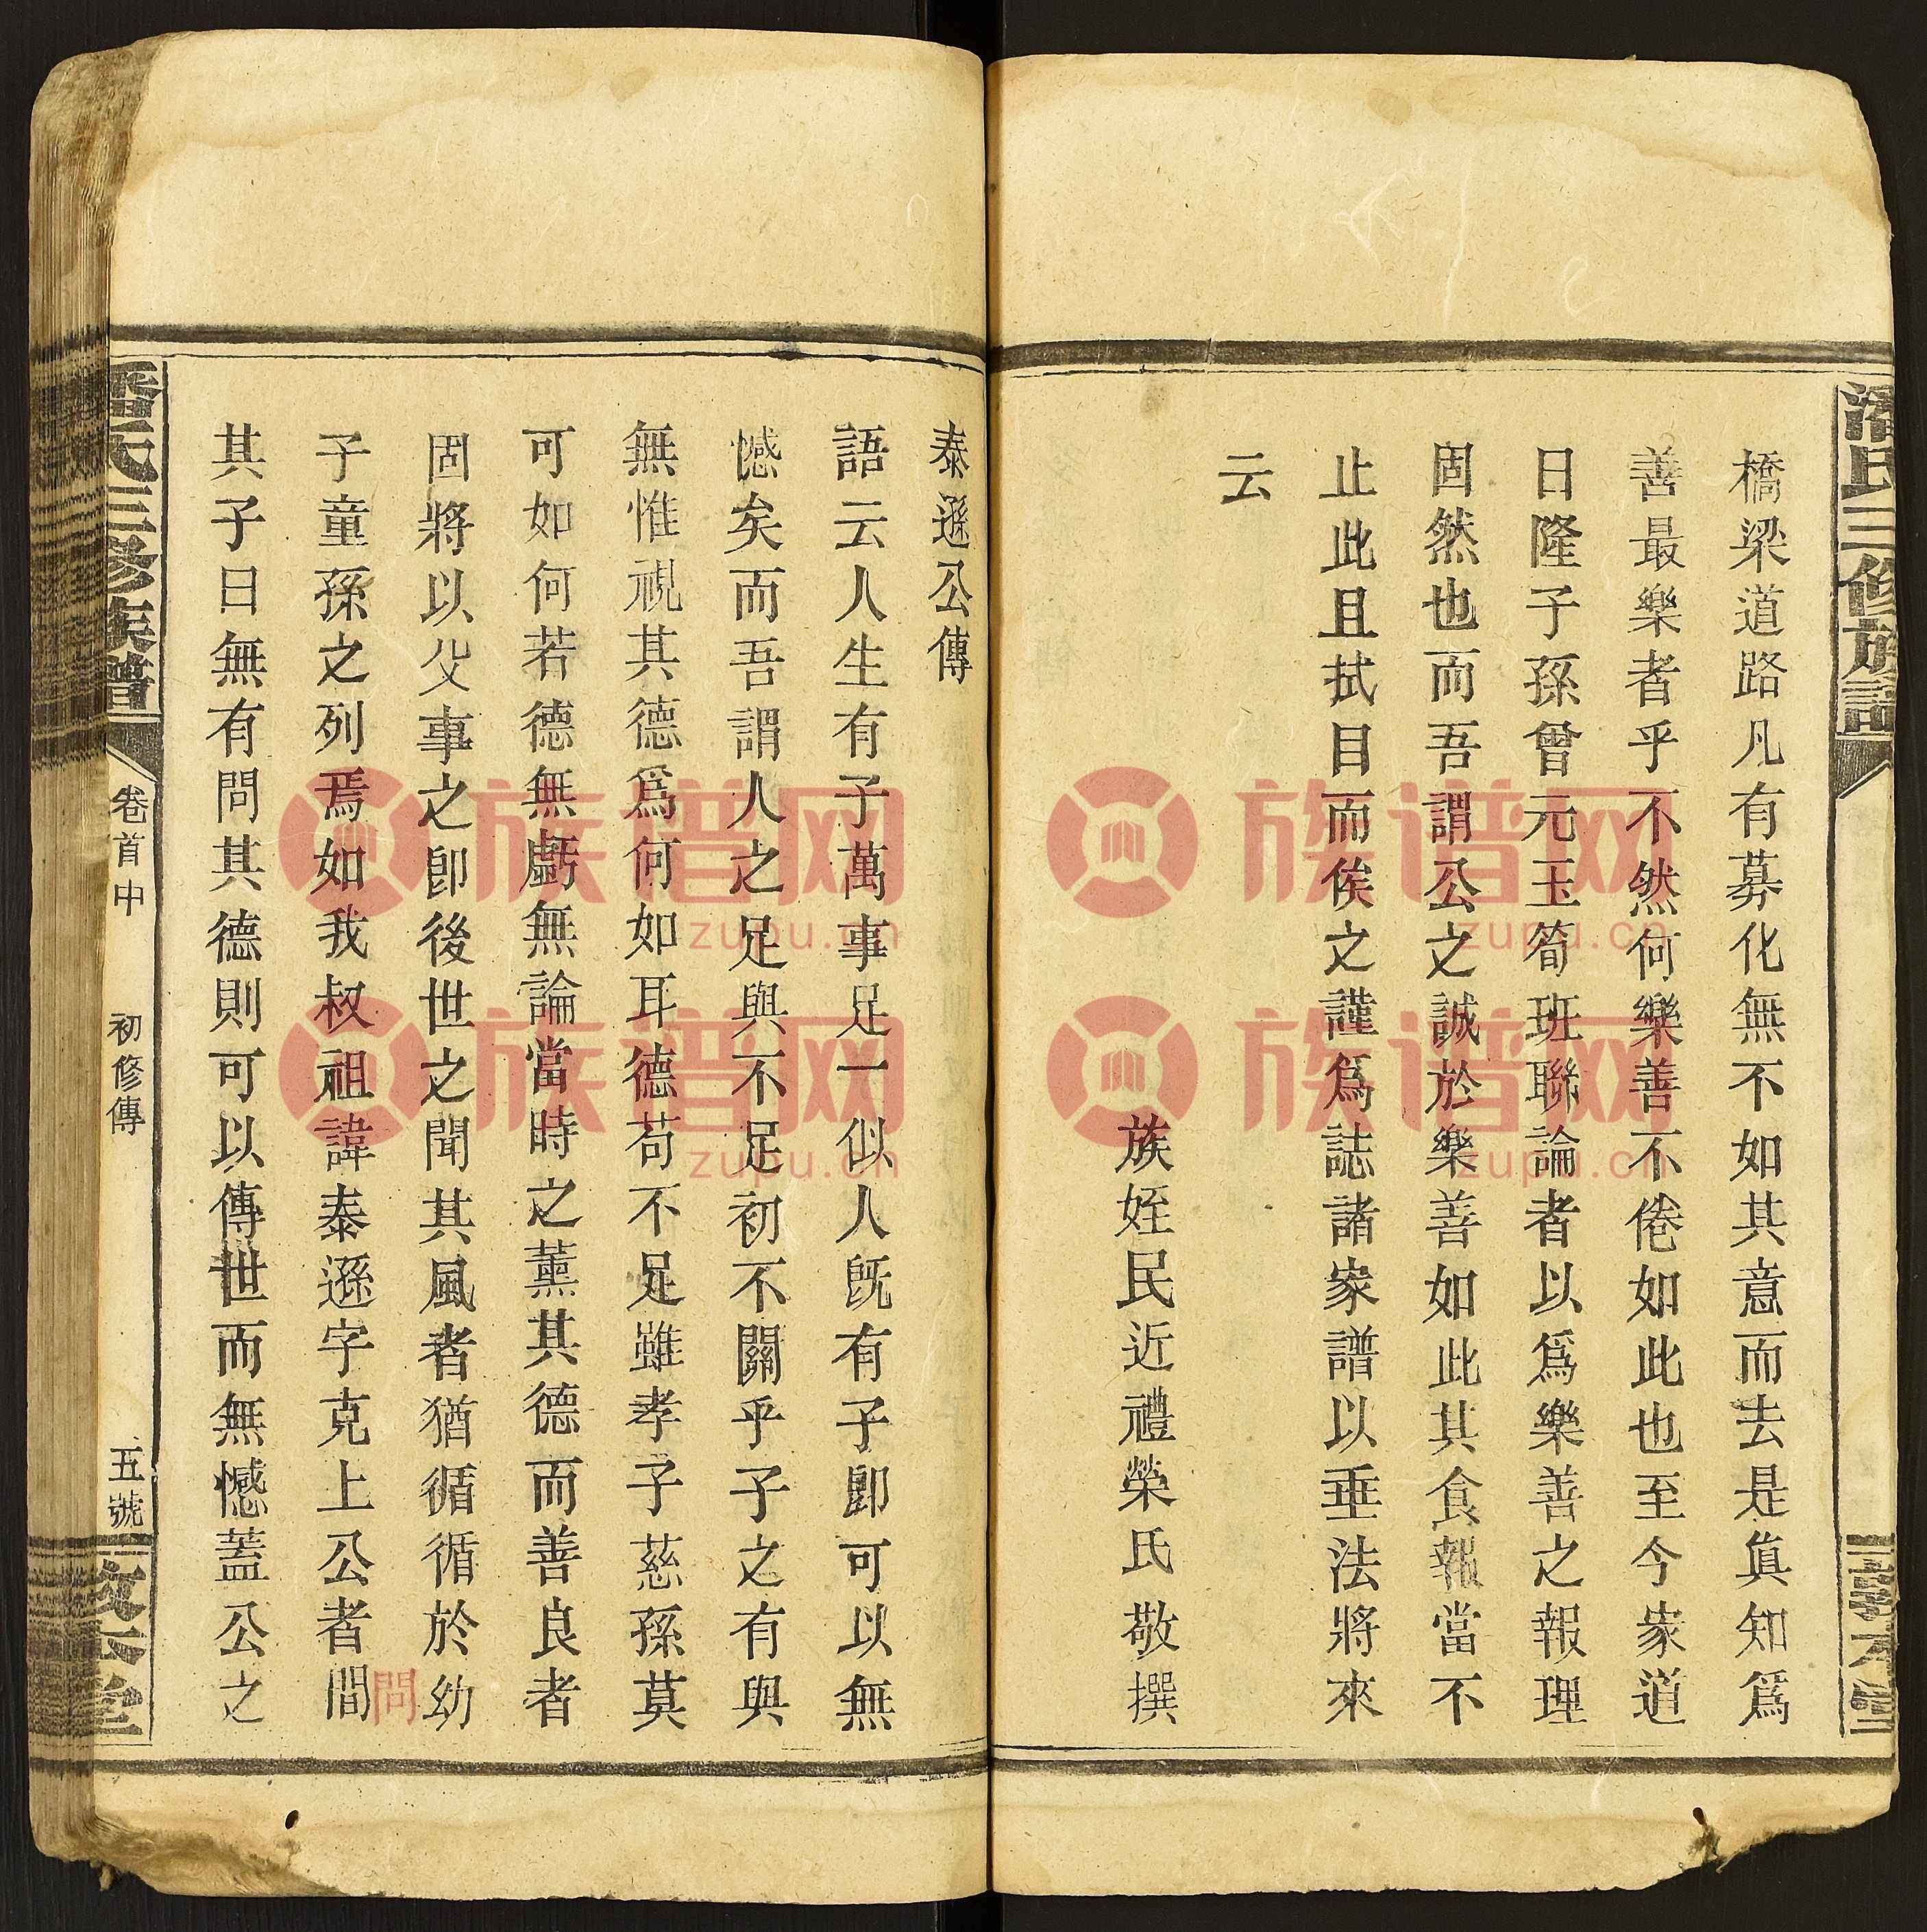 潘氏三修族譜
橋梁道路凡有募化無不如其意而去是眞知爲
善最樂者乎不然何樂善不倦如此也至今家道
日隆子孫曾元玉筍班聯論者以爲樂善之報理
固然也而吾謂公之誠於樂善如此其食報當不
止此且拭目而俟之謹爲誌諸家譜以垂法將來
云
族姪民近禮榮氏敬撰
泰遜公傳
語云人生有子萬事足一似人旣有子卽可以無
憾矣而吾謂人之足與不足初不關乎子之有與
無惟視其德爲何如耳德苟不足雖孝子慈孫莫
可如何若德無虧無論當時之薰其德而善良者
固將以父事之卽後世之聞其風者猶循循於幼
子童孫之列焉如我叔祖諱泰遜字克上公者間
問
其子曰無有問其德則可以傳世而無憾蓋公之
潘氏三修族譜
卷首中
初修傳
五號
族谱网
zupu.cn
族谱网
zupu.cn
族谱网
zupu.cn
族谱网
zupu.cn